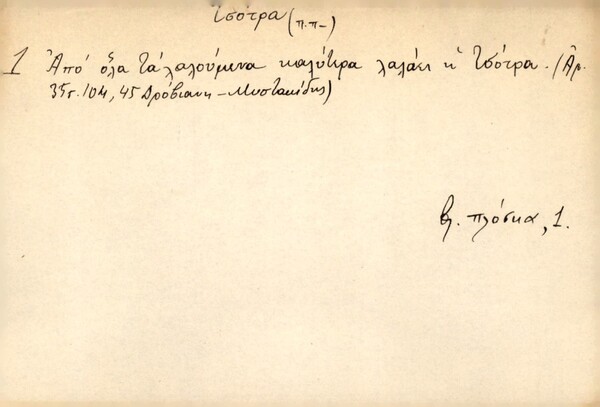 τσότρα (π.π-)
1 Ἀπό ὅλα τά λαλούμενα καλύτερα λαλάει ἡ τσότρα. (Ἀρ.
35γ. 104, 45 Δρόβιανη - Μυστακίδης)
βλ. πλόσκα, 1.